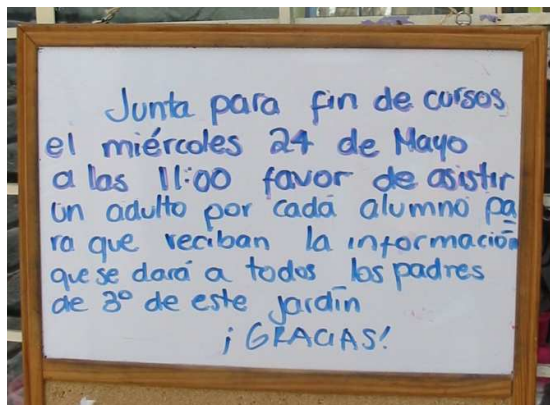 Junta para fin de cursos
el miércoles 24 de Mayo
a las 11:00 favor de asistir
un adulto por cada alumno pa
ra que reciban la información
que se dará a todos los padres
de 3º de este jardín
¡GRACIAS!